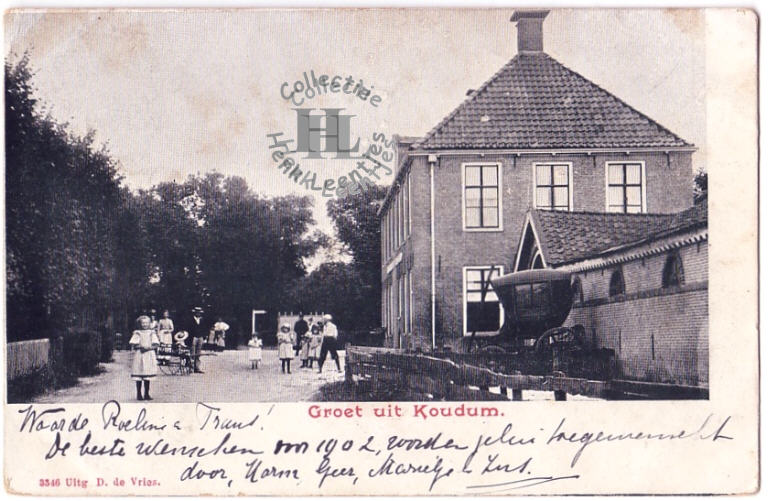 Collectie
HL
HenkLeentjes
Groet uit Koudum.
Waarde Roelina Trans!
De beste wenschen voor 1902, worden jelui toegewenscht
door, Harm, Geer, Marietje
3346 Uitg D. de Vries.